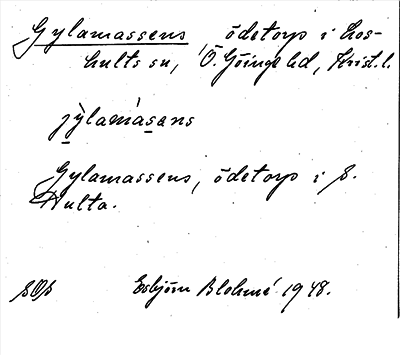 Gylamassens ödetorp i Los-
hults sn, Ö. Göinge hd, Krist. l.
jỳlamàsans
Gylamassens, ödetorp i S.
Hulta.
Esbjörn Blohmé 1948.